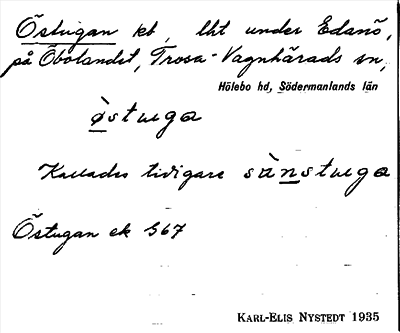 Östugan kt, lht under Edanö,
på Öbolandet, Trosa-Vagnhärads sn,
Hölebo hd, Södermanlands län
östuga
Kallades tidigare sànstuga
Östugan ek 567
KARL-ELIS NYSTEDT 1935